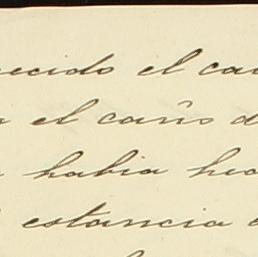 ecido el ca
el caño d
habia hec
estancia